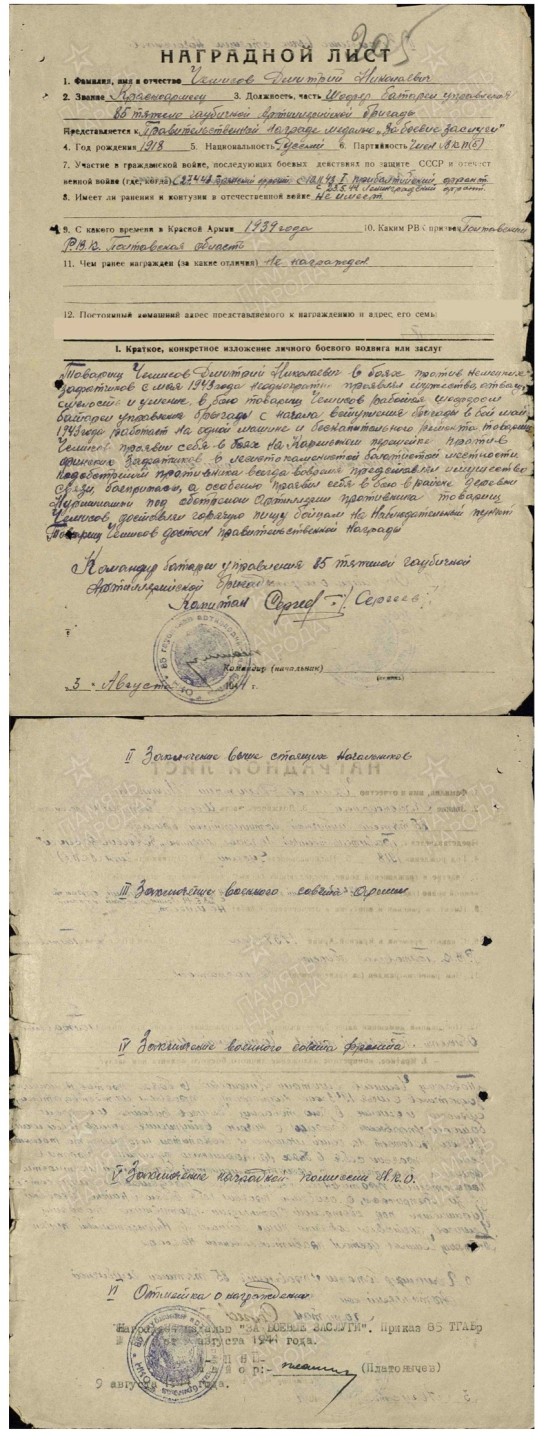 НАГРАДНОЙ ЛИСТ
1. Фамилия, имя и отчество Чемисов Дмитрий Николаевич
2. Звание Красноармеец 3. Должность, часть Шофер батареи управления
85 тяжело гаубичной артиллерийской бригады
Представляется к Правительственной награде медалью "За боевые заслуги"
4. Год рождения 1918 5. Национальность Русский 6. Партийность Член
7. Участие в гражданской войне, последующих боевых действиях по защите СССР и отечест
венной войне (где, когда) фронт прибалтийский фронт
Ленинградский фронт
8. Имеет ли ранения и контузии в отечественной войне Не имеет
9. С какого времени в Красной Армии 1939 года 10. Каким РВК призван Полтавским
Р.В.К. Полтавская область
11. Чем ранее награжден (за какие отличия) Не награжден
12. Постоянный домашний адрес представляемого к награждению и адрес его семьи
I. Краткое, конкретное изложение личного боевого подвига или заслуг
Товарищ Чемисов Дмитрий Николаевич в боях против немецких
захватчиков с мая 1943 года неоднократно проявлял мужество, отвагу,
смелость и умение, в бою товарищ Чемисов работая шофером
батареи управления бригады с начала вступления бригады в бой май
1943 года работает на одной машине и без капительного ремонта товарищ
Чемисов проявил себя в боях на Карельском перешейке против
финских захватчиков в лесисто каменистой болотистой местности
под обстрелом противника всегда вовремя представлял имущество
связи, боеприпасы, а особенно проявил себя в бою в районе деревни
под обстрелом артиллерии противника товарищ
Чемисов доставлял горячую пищу бойцам на Наблюдательный пункт
Товарищ Чемисов достоин правительственной награды
Командир батареи управления 85 тяжелой гаубичной
Артиллерийской бригады
Капитан Сергеев
Командир (начальник)
(подпись)
3 Августа 1944 г.
II Заключение выше стоящих начальников
III Заключение военного совета Армии
IV Заключение военного совета фронта
V Заключение наградной комиссии Н.К.О.
VI Отметка о награждении
Награжден медалью "ЗА БОЕВЫЕ ЗАСЛУГИ". Приказ 85 ТГАБр
от августа 1944 года.
(Платонычев)
9 августа года.
ПАМЯТЬ
НАРОДА